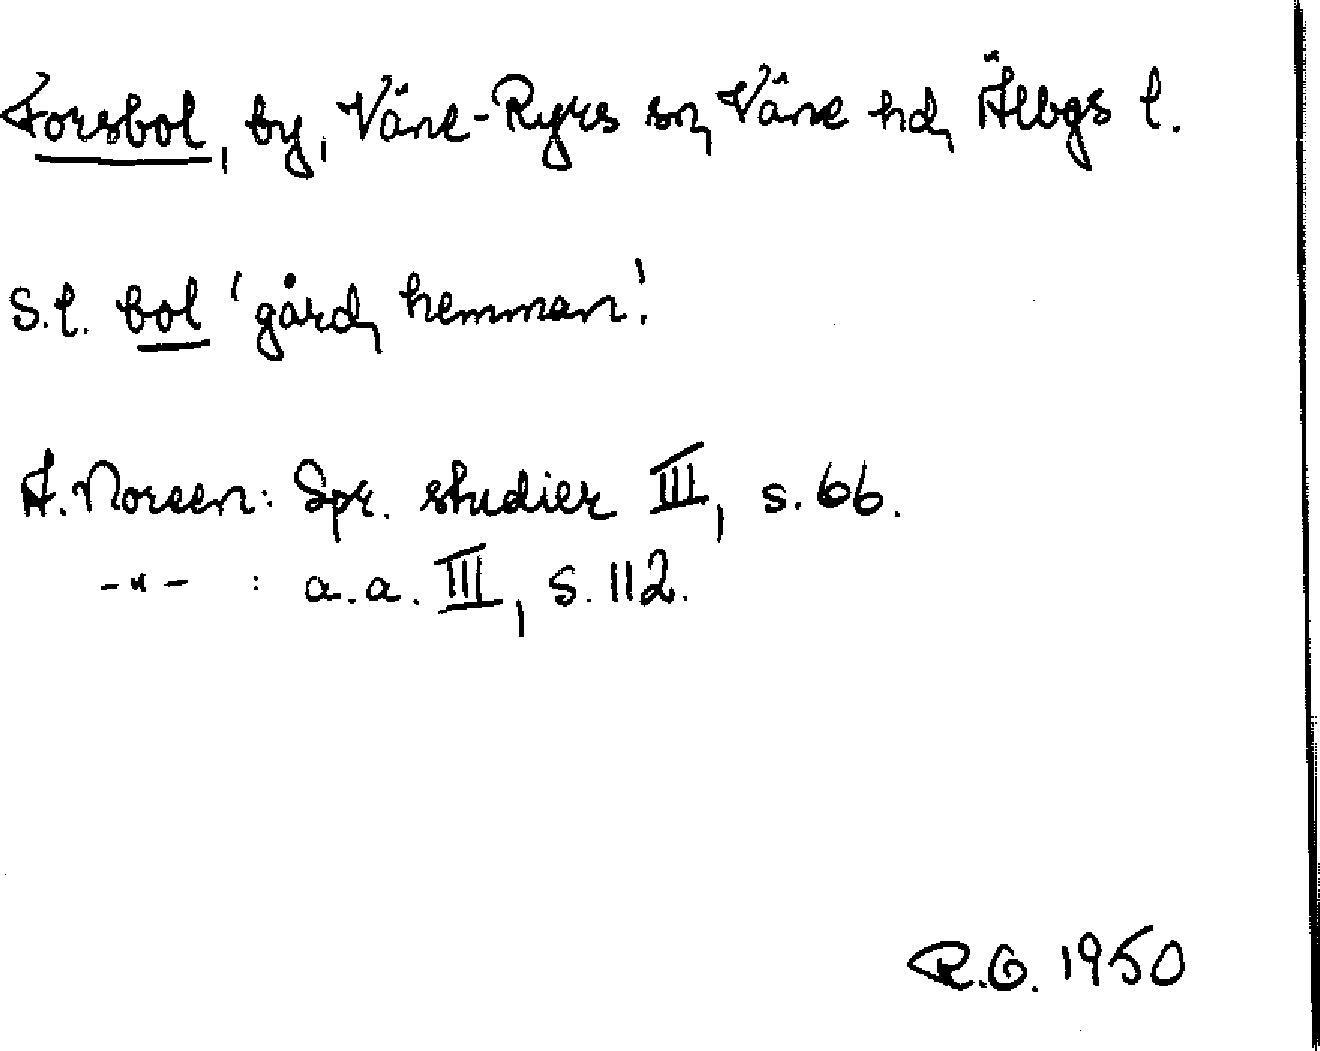 Forsbol, by, Väne-Ryrs sn, Väne hd, Älvbgs l.
S.l. bol 'gård, hemman'.
A. Noreen: Spr. studier III, s. 66.
-"- : a.a. III, s. 112.
R.G. 1950